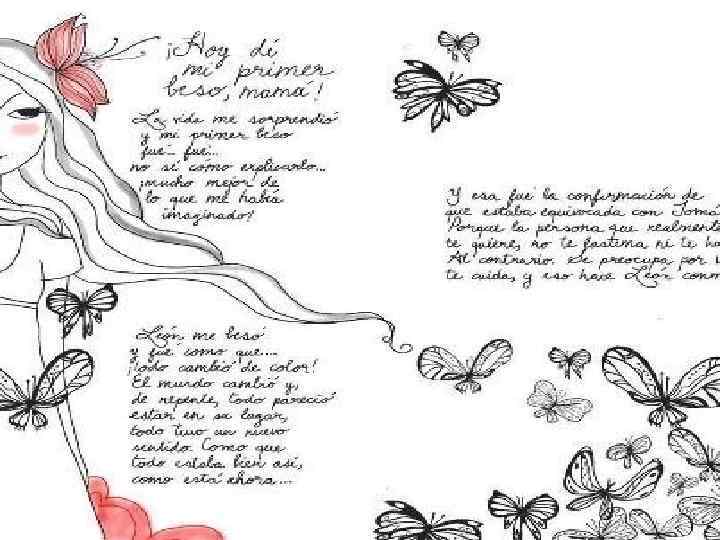 ¡Hoy dí
mi primer
beso, mamá!
La vida me sorprendió
y mi primer beso
fué... fué...
no sé cómo explicarlo...
¡mucho mejor de
lo que me había
imaginado!
León me besó
y fué como que....
¡todo cambió de color!
El mundo cambió y,
de repente, todo pareció
estar en su lugar,
todo tuvo un nuevo
sentido. Como que
todo estaba bien así,
como está ahora...
Y esa fué la confirmación de
que estaba equivocada con Tomá
Porque la persona que realmente
te quiere, no te lastima ni te ha
Al contrario. Se preocupa por
te cuida, y eso hace León conm